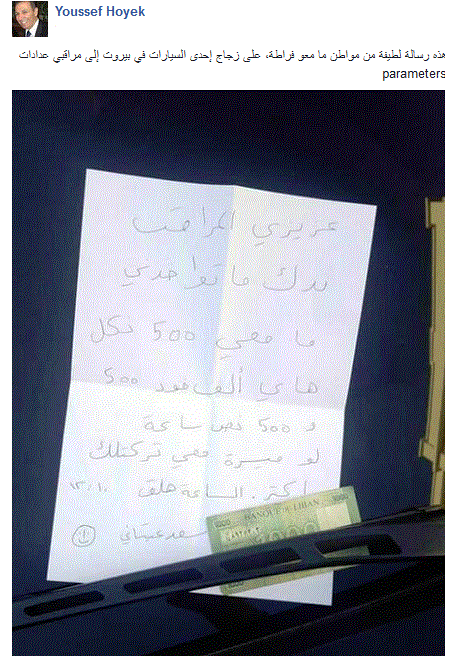 Youssef Hoyek
هذه رسالة لطيفة من مواطن ما معو فراطة، على زجاج إحدى السيارات في بيروت إلى مراقبي عدادات
parameters
عزيزي المراقب
بدك ما تواخدي
ما معي 500 تكل
هاي ألف هود 500
و 500 نص ساعة
لو ميسرة معي تركتلك
اكتر. الساعة هلق ١٢،١٠
BANQUE DU LIBAN
1000